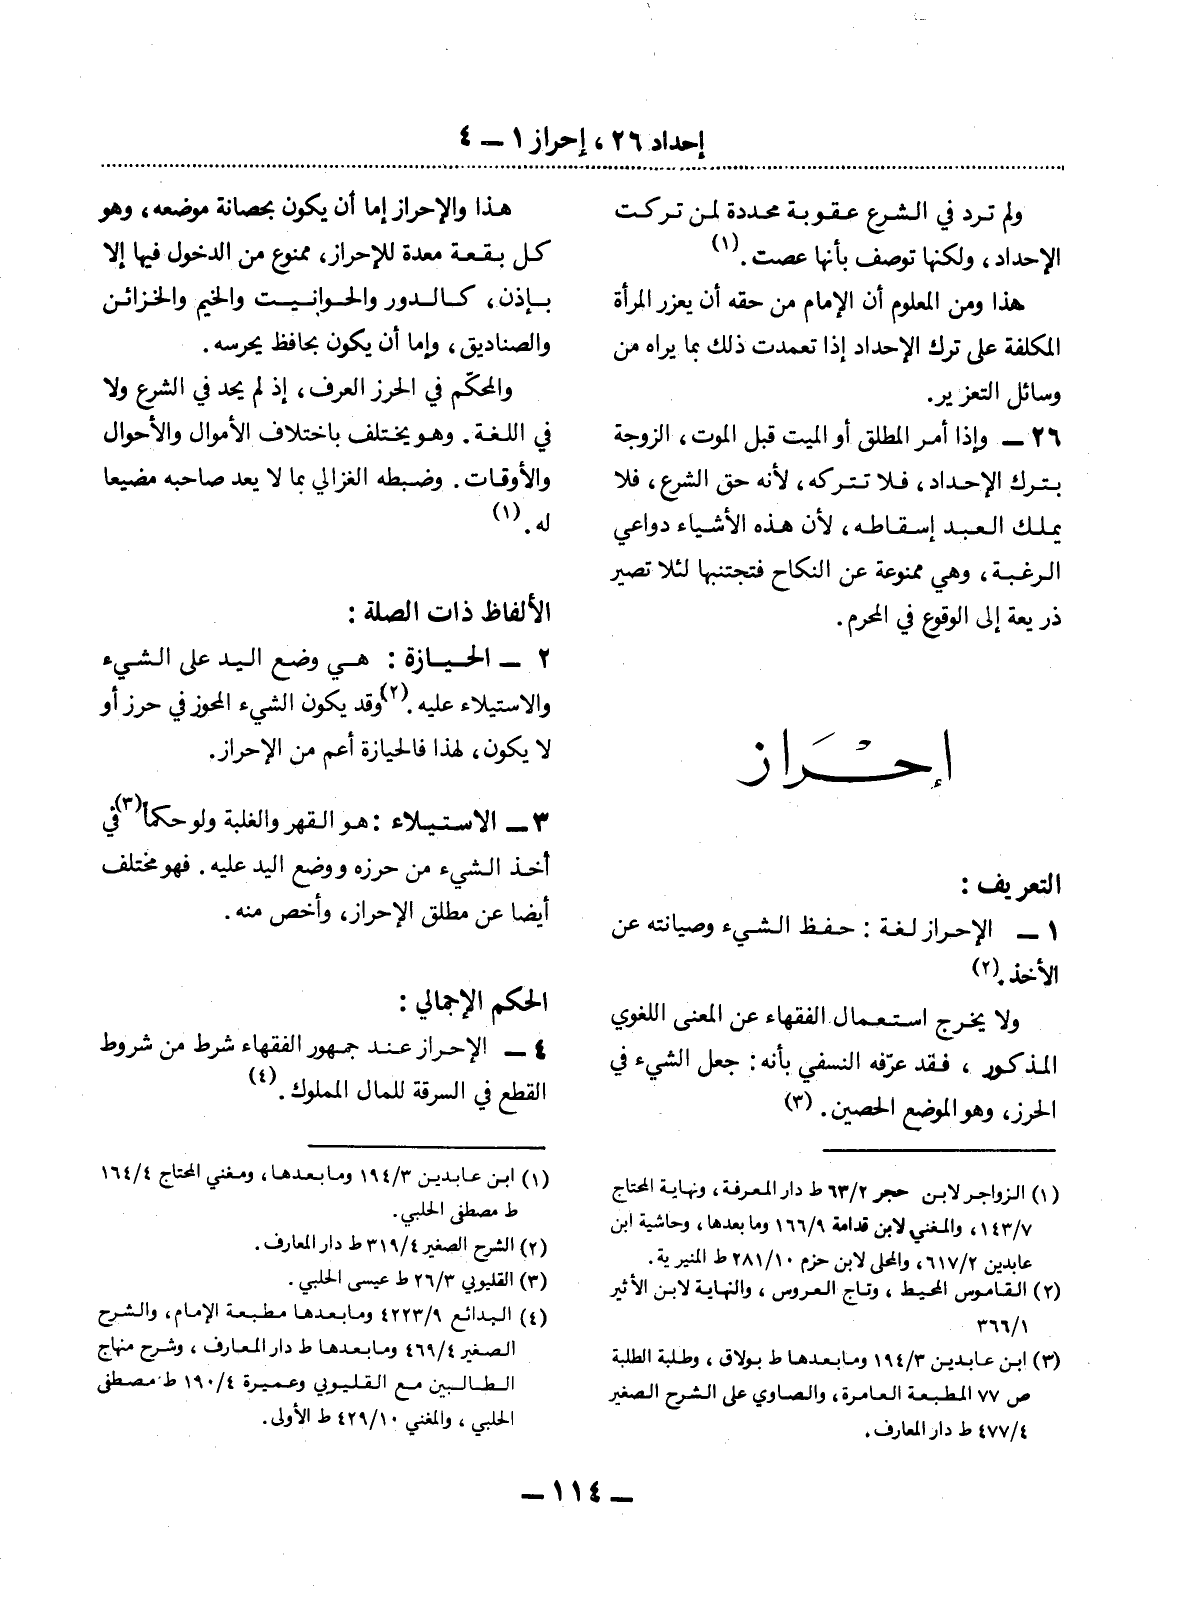 إحداد ٢٦ ، إحراز ١ ــ ٤
ولم ترد في الشرع عقوبة محددة لمن تركت
الإحداد ، ولكنها توصف بأنها عصت . (١)
هذا ومن المعلوم أن الإمام من حقه أن يعزر المرأة
المكلفة على ترك الإحداد إذا تعمدت ذلك بما يراه من
وسائل التعزير.
٢٦ ــ وإذا أمر المطلق أو الميت قبل الموت ، الزوجة
بترك الإحداد ، فلا تتركه ، لأنه حق الشرع ، فلا
يملك العبد إسقاطه ، لأن هذه الأشياء دواعي
الرغبة ، وهي ممنوعة عن النكاح فتجتنبها لئلا تصير
ذريعة إلى الوقوع في المحرم .
إحْرَاز
التعريف :
١ ــ الإحراز لغة : حفظ الشيء وصيانته عن
الأخذ . (٢)
ولا يخرج استعمال الفقهاء عن المعنى اللغوي
المذكور ، فقد عرّفه النسفي بأنه : جعل الشيء في
الحرز، وهو الموضع الحصين . (٣)
(١) الزواجر لابن حجر ٦٣/٢ ط دار المعرفة ، ونهاية المحتاج
١٤٣/٧ ، والمغني لابن قدامة ١٦٦/٩ وما بعدها ، وحاشية ابن
عابدين ٦١٧/٢ ، والمحلى لابن حزم ٢٨١/١٠ ط المنيرية .
(٢) القاموس المحيط ، وتاج العروس ، والنهاية لابن الأثير
٣٦٦/١
(٣) ابن عابدين ١٩٤/٣ ومابعدها ط بولاق ، وطلبة الطلبة
ص ٧٧ المطبعة العامرة ، والصاوي على الشرح الصغير
٤٧٧/٤ ط دار المعارف .
هذا والإحراز إما أن يكون بحصانة موضعه ، وهو
كل بقعة معدة للإحراز، ممنوع من الدخول فيها إلا
بإذن ، كالدور والحوانيت والخيم والخزائن
والصناديق ، وإما أن يكون بحافظ يحرسه .
والمحكّم في الحرز العرف ، إذ لم يحد في الشرع ولا
في اللغة . وهو يختلف باختلاف الأموال والأحوال
والأوقات . وضبطه الغزالي بما لا يعد صاحبه مضيعا
له . (١)
الألفاظ ذات الصلة :
٢ ــ الحيازة : هي وضع اليد على الشيء
والاستيلاء عليه . (٢) وقد يكون الشيء المحوز في حرز أو
لا يكون ، لهذا فالحيازة أعم من الإحراز.
٣ ــ الاستيلاء : هو القهر والغلبة ولو حكما (٣) في
أخذ الشيء من حرزه ووضع اليد عليه . فهو مختلف
أيضا عن مطلق الإحراز، وأخص منه .
الحكم الإجمالي :
٤ ــ الإحراز عند جمهور الفقهاء شرط من شروط
القطع في السرقة للمال المملوك . (٤)
(١) ابن عابدين ١٩٤/٣ ومابعدها ، ومغني المحتاج ١٦٤/٤
ط مصطفى الحلبي .
(٢) الشرح الصغير ٣١٩/٤ ط دار المعارف .
(٣) القليوبي ٢٦/٣ ط عيسى الحلبي .
(٤) البدائع ٤٢٢٣/٩ ومابعدها مطبعة الإمام ، والشرح
الصغير ٤٦٩/٤ ومابعدها ط دار المعارف ، وشرح منهاج
الطالبين مع القليوبي وعميرة ١٩٠/٤ ط مصطفى
الحلبي ، والمغني ٤٢٩/١٠ ط الأولى .
ــ ١١٤ ــ